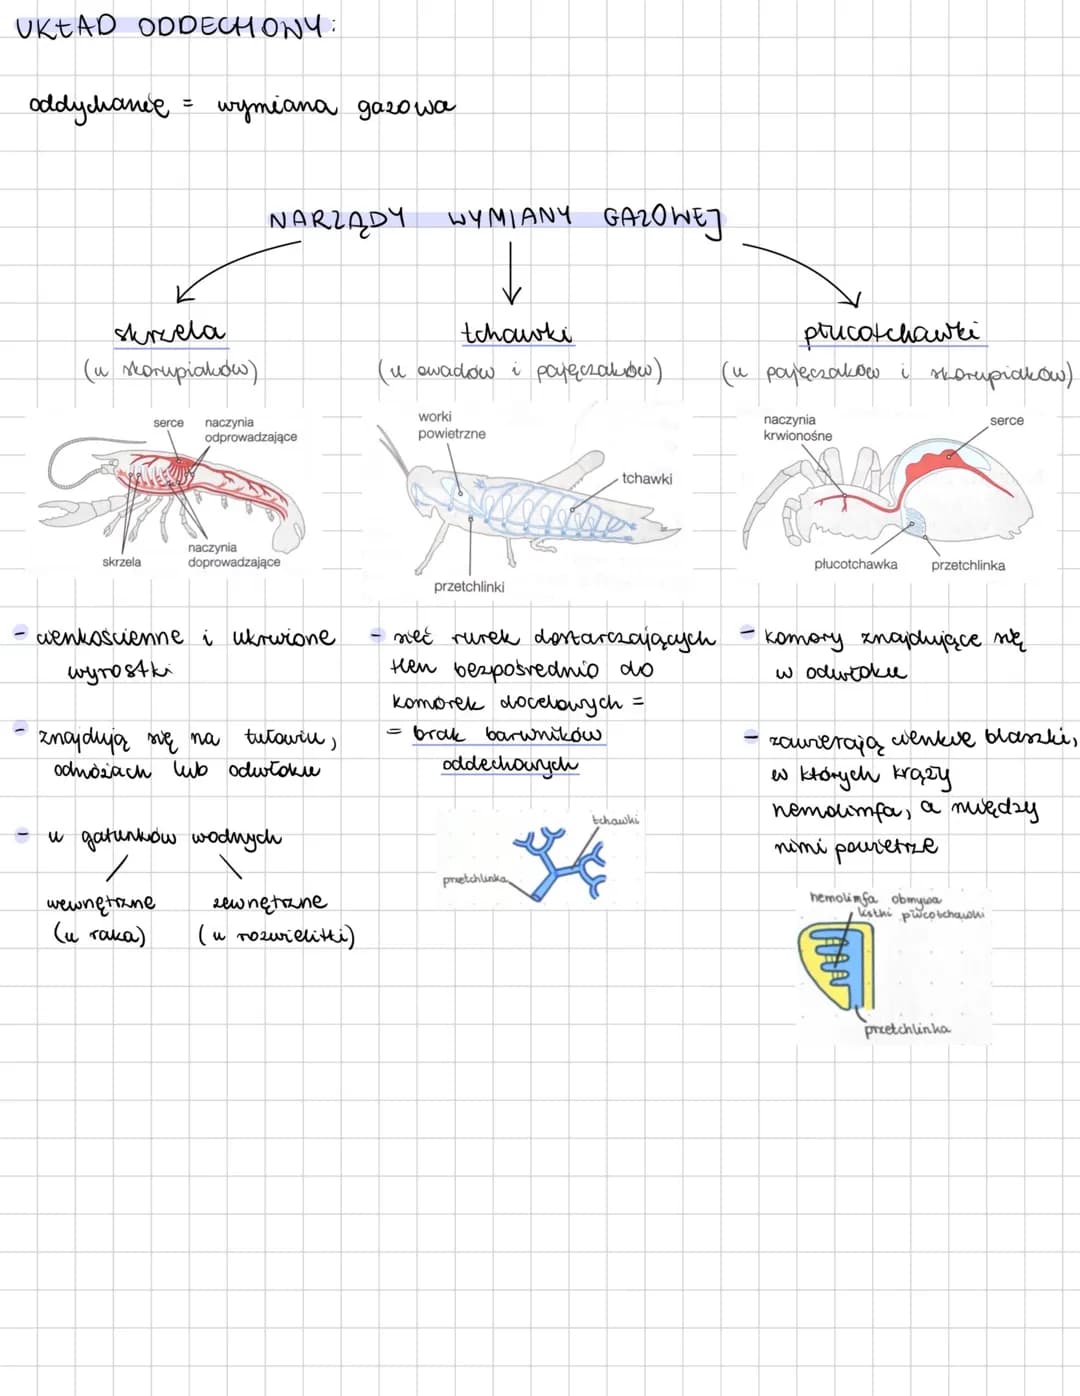 UKŁAD ODDECHOWY:
oddychanie = wymiana gazowa
NARZĄDY WYMIANY GAZOWEJ
skrzela
(u skorupiaków)
serce
naczynia
odprowadzające
skrzela
naczynia
doprowadzające
- cienkościenne i ukrwione
wyrostki
- znajdują się na tułowiu,
odnóżach lub odwłoku
- u gatunków wodnych
wewnętrzne
(u raka)
zewnętrzne
(u rozwielitki)
tchawki
(u owadów i pajęczaków)
worki
powietrzne
tchawki
przetchlinki
- sieć rurek dostarczających
tlen bezpośrednio do
komórek docelowych =
= brak barwników
oddechowych
tchawki
przetchlinka
płucotchawki
(u pajęczaków i skorupiaków)
naczynia
krwionośne
serce
płucotchawka
przetchlinka
- komory znajdujące się
w odwłoku
- zawierają cienkie blaszki,
w których krąży
hemolimfa, a między
nimi powietrze
hemolimfa obmywa
listki płucotchawki
przetchlinka